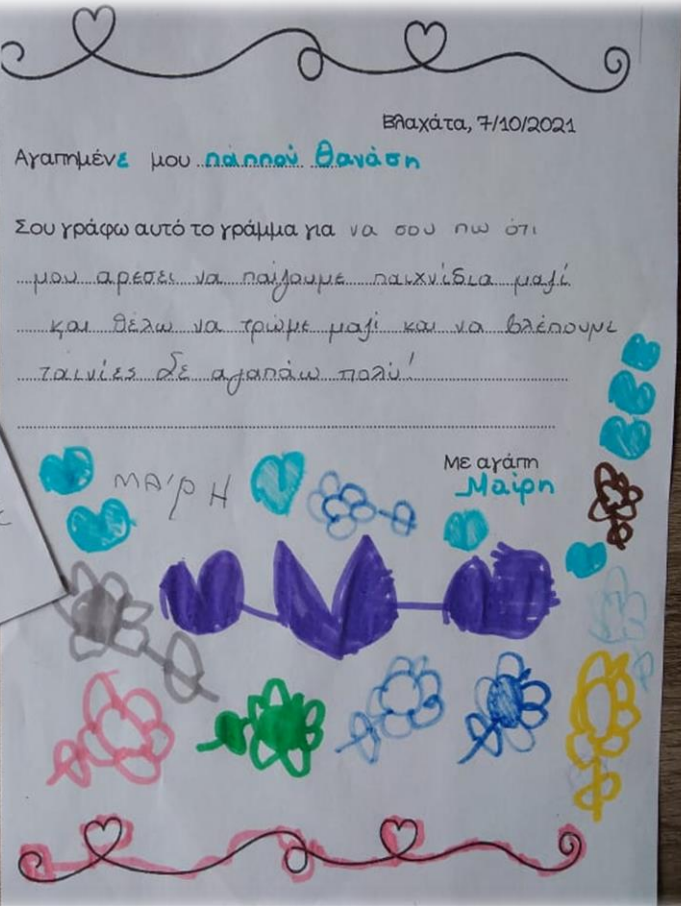 Βλαχάτα, 7/10/2021
Αγαπημένε μου παππού Θανάση
Σου γράφω αυτό το γράμμα για να σου πω ότι
μου αρεσει να παίζουμε παιχνίδια μαζί
και θέλω να τρώμε μαζί και να βλέπουμε
ταινίες Σε αγαπάω πολύ!
Με αγάπη
ΜΑΊΡΗ Μαίρη